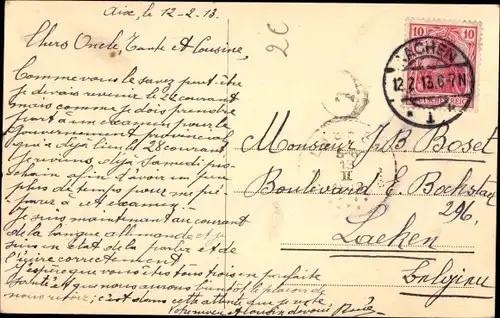 Aix, le 12-2-13.
Chers Oncle, Tante et Cousine,
Comme vous le savez peut-être
je devais revenir le 22 courant
mais comme je dois prendre
part à un examen pour le
Gouvernement provincial
qui a déjà lieu le 28 courant
je reviens déjà Samedi pro-
chain afin d'avoir un peu
plus de temps pour me pré-
parer à cet examen.
Je suis maintenant au courant
de la langue allemande et
suis en état de la parler et de
l'écrire correctement.
J'espère que vous êtes tous trois en parfaite
santé et que nous aurons bientôt le plaisir de
nous revoir; c'est dans cette attente que je reste
Votre neveu et cousin dévoué René
2C
10 10
DEUTSCHES REICH
AACHEN
12.2.13.6-7N
* 1
Monsieur J. B. Boset
Boulevard E. Bockstael
296,
Laeken
Belgique